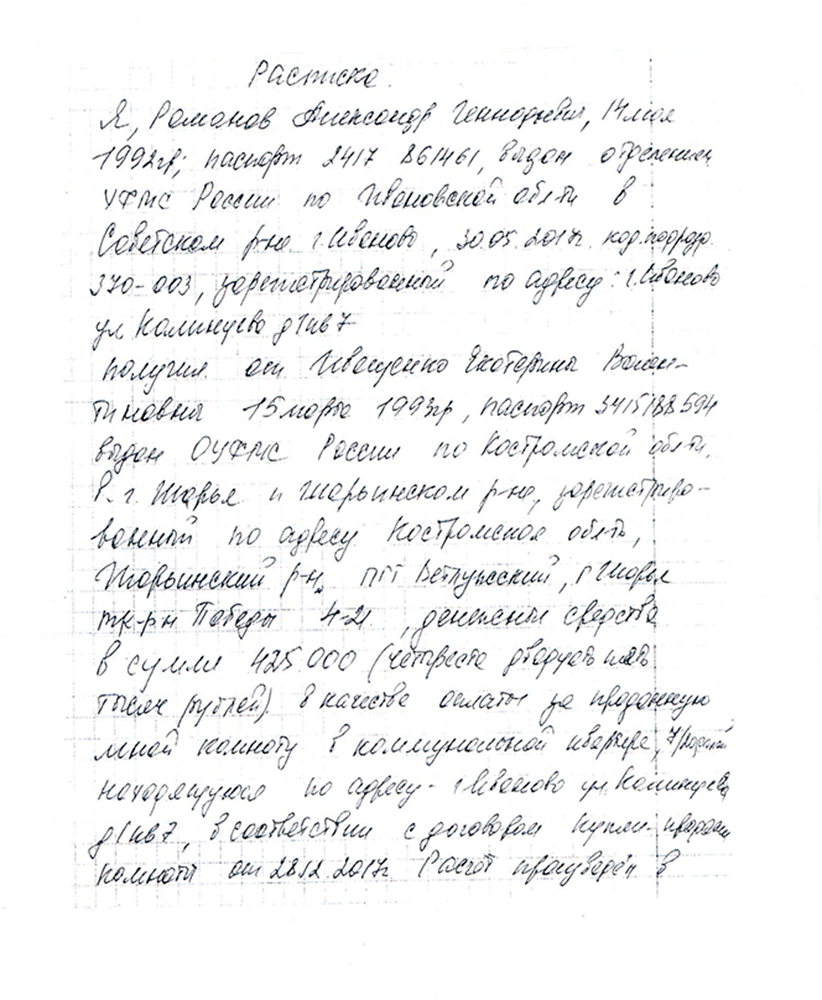 Расписка
Я, Романов Александр Геннадьевич, 14 мая
1992гр; паспорт 2417 861461, выдан отделением
УФМС России по Ивановской обл-ти в
Советском р-не г.Иваново, 30.05.2017г. код.подразд.
370-003, зарегистрированный по адресу: г.Иваново
ул Калинцева д1кв7
получил от Иващенко Екатерина Вален-
тиновна 15 марта 1993гр, паспорт 3415188594
выдан ОУФМС России по Костромской обл-ти.
в г. Шарья и Шарьинском р-не, зарегистриро-
ванный по адресу Костромская обл-ть,
Шарьинский р-н, пгт Ветлужский, г Шарья
мк-рн Победы 4-21, денежные средства
в сумме 425 000 (четыреста двадцать пять
тысяч рублей). в качестве оплаты за проданную
мной комнату в коммунальной квартире,
находящуюся по адресу- г.Иваново ул.Калинцева
д1кв7, в соответствии с договором купли-продажи
комнаты от 28.12.2017г. Расчёт произведён в